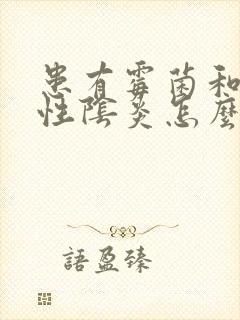 患有霉菌和
性陰炎怎麼
語盈臻